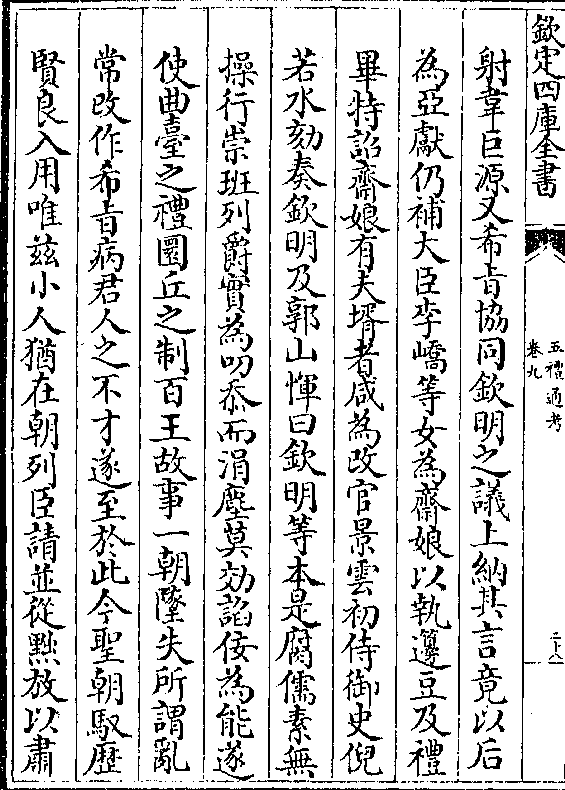 欽定四庫全書
五禮通考
卷九
二十八
射韋巨源又希㫖協同欽明之議上納其言竟以后
為亞獻仍補大臣李嶠等女為齋娘以執籩豆及禮
畢特詔齋娘有夫壻者咸為改官景雲初侍御史倪
若水劾奏欽明及郭山惲曰欽明等本是腐儒素無
操行崇班列爵實為叨忝而涓塵莫効諂佞為能遂
使曲臺之禮圜丘之制百王故事一朝墜失所謂亂
常改作希㫖病君人之不才遂至於此今聖朝馭歴
賢良入用唯兹小人猶在朝列臣請並從黜放以肅